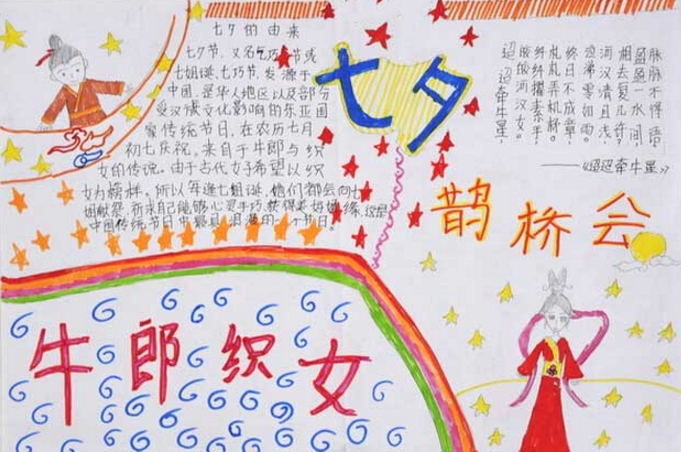 七夕的由来
七夕节，又名乞巧节或
七姐诞、七巧节，发源于
中国，是华人地区以及部分
受汉族文化影响的东亚国
家传统节日，在农历七月
初七庆祝，来自于牛郎与织
女的传说。由于古代女子希望以织
女为榜样，所以每逢七姐诞，她们都会向七
姐献祭，祈求自己能够心灵手巧、获得美好姻缘，这是
中国传统节日中最具浪漫的一个节日。
七夕
迢迢牵牛星，
皎皎河汉女。
纤纤擢素手，
札札弄机杼。
终日不成章，
泣涕零如雨。
河汉清且浅，
相去复几许？
盈盈一水间，
脉脉不得语。
——《迢迢牵牛星》
鹊桥会
牛郎织女